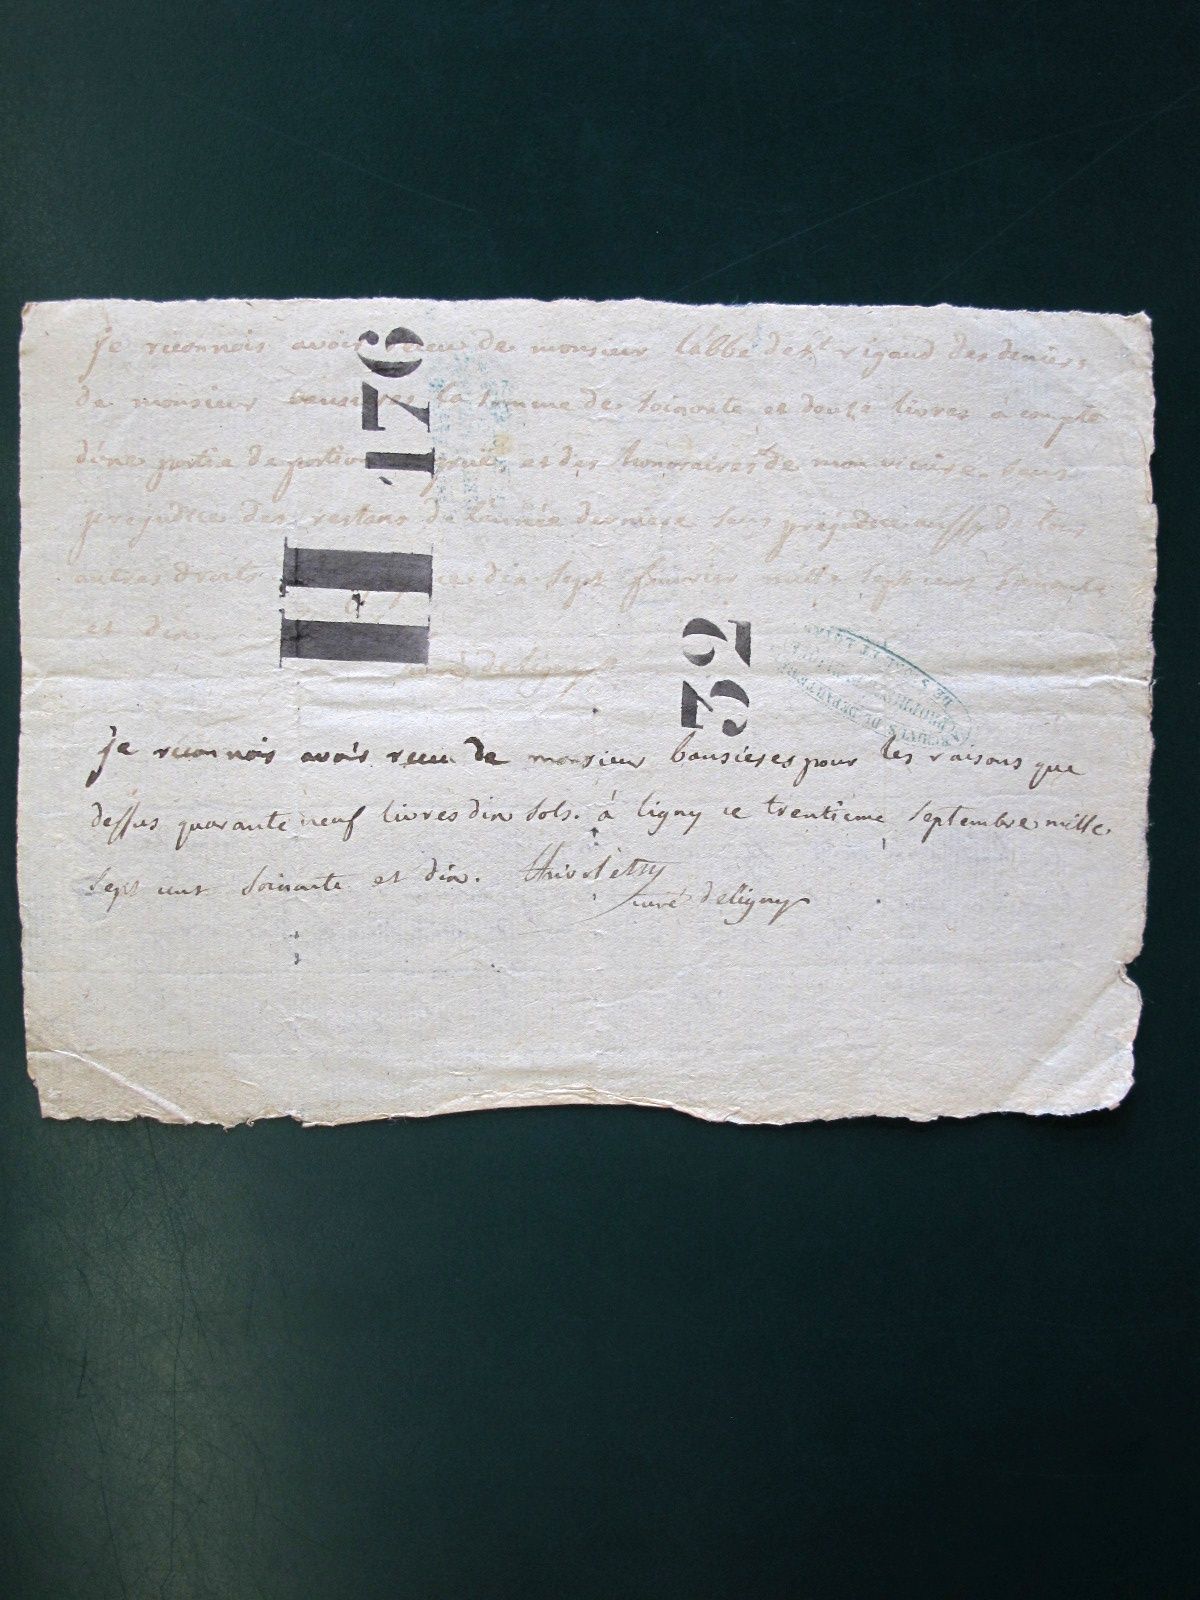 je reconnois avoir receu de monsieur l'abbé de st rigaud des deniers
de monsieur bausieres la somme de soixante et douze livres a compte
d'une portion et des honoraires de mon vicaire. sans
prejudice des restans de l'année derniere sans prejudice aussy de tous
autres droits ce dix sept fevrier mille sept cent soixante
et dix.
deligny
H 176
32
je reconnois avoir receu de monsieur bausieres pour les raisons que
dessus quarante neuf livres dix sols. á ligny ce trentieme septembre mille
sept cent soixante et dix.
curé deligny